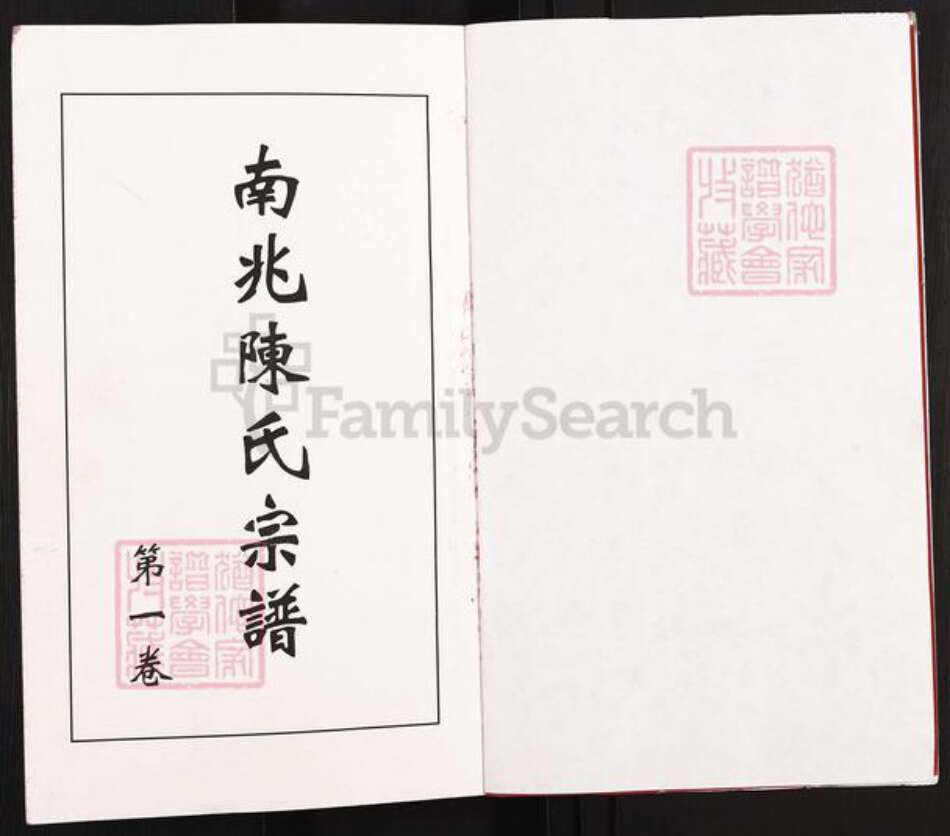 南兆陳氏宗譜
第一卷
猶他家
譜學會
收藏
猶他家
譜學會
收藏
FamilySearch